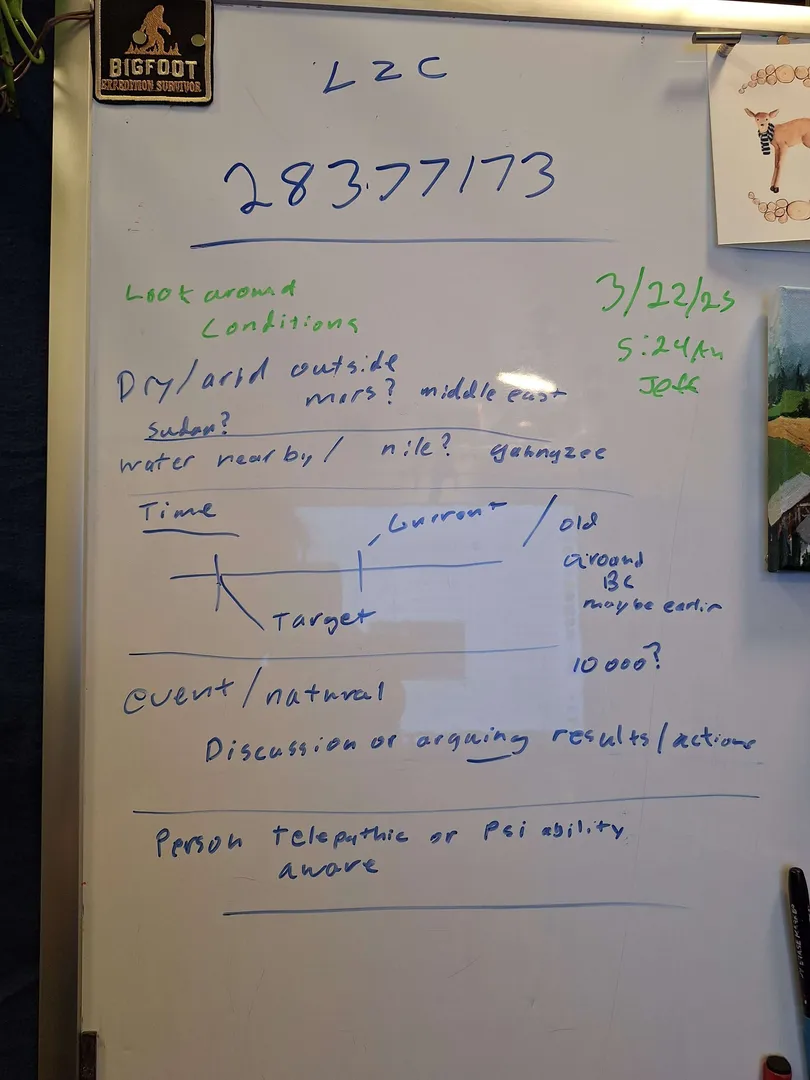 BIGFOOT
EXPEDITION SURVIVOR
L2C
283.77173
Look around
Conditions
3/22/25
5:24 AM
Jeff
Dry/arid outside
mars? middle east
Sudan?
water nearby/ nile? gahnyzee
Time
Current
/ old
around
BC
maybe earlier
Target
10000?
event/natural
Discussion or arguing results/actions
Person Telepathic or Psi ability
aware